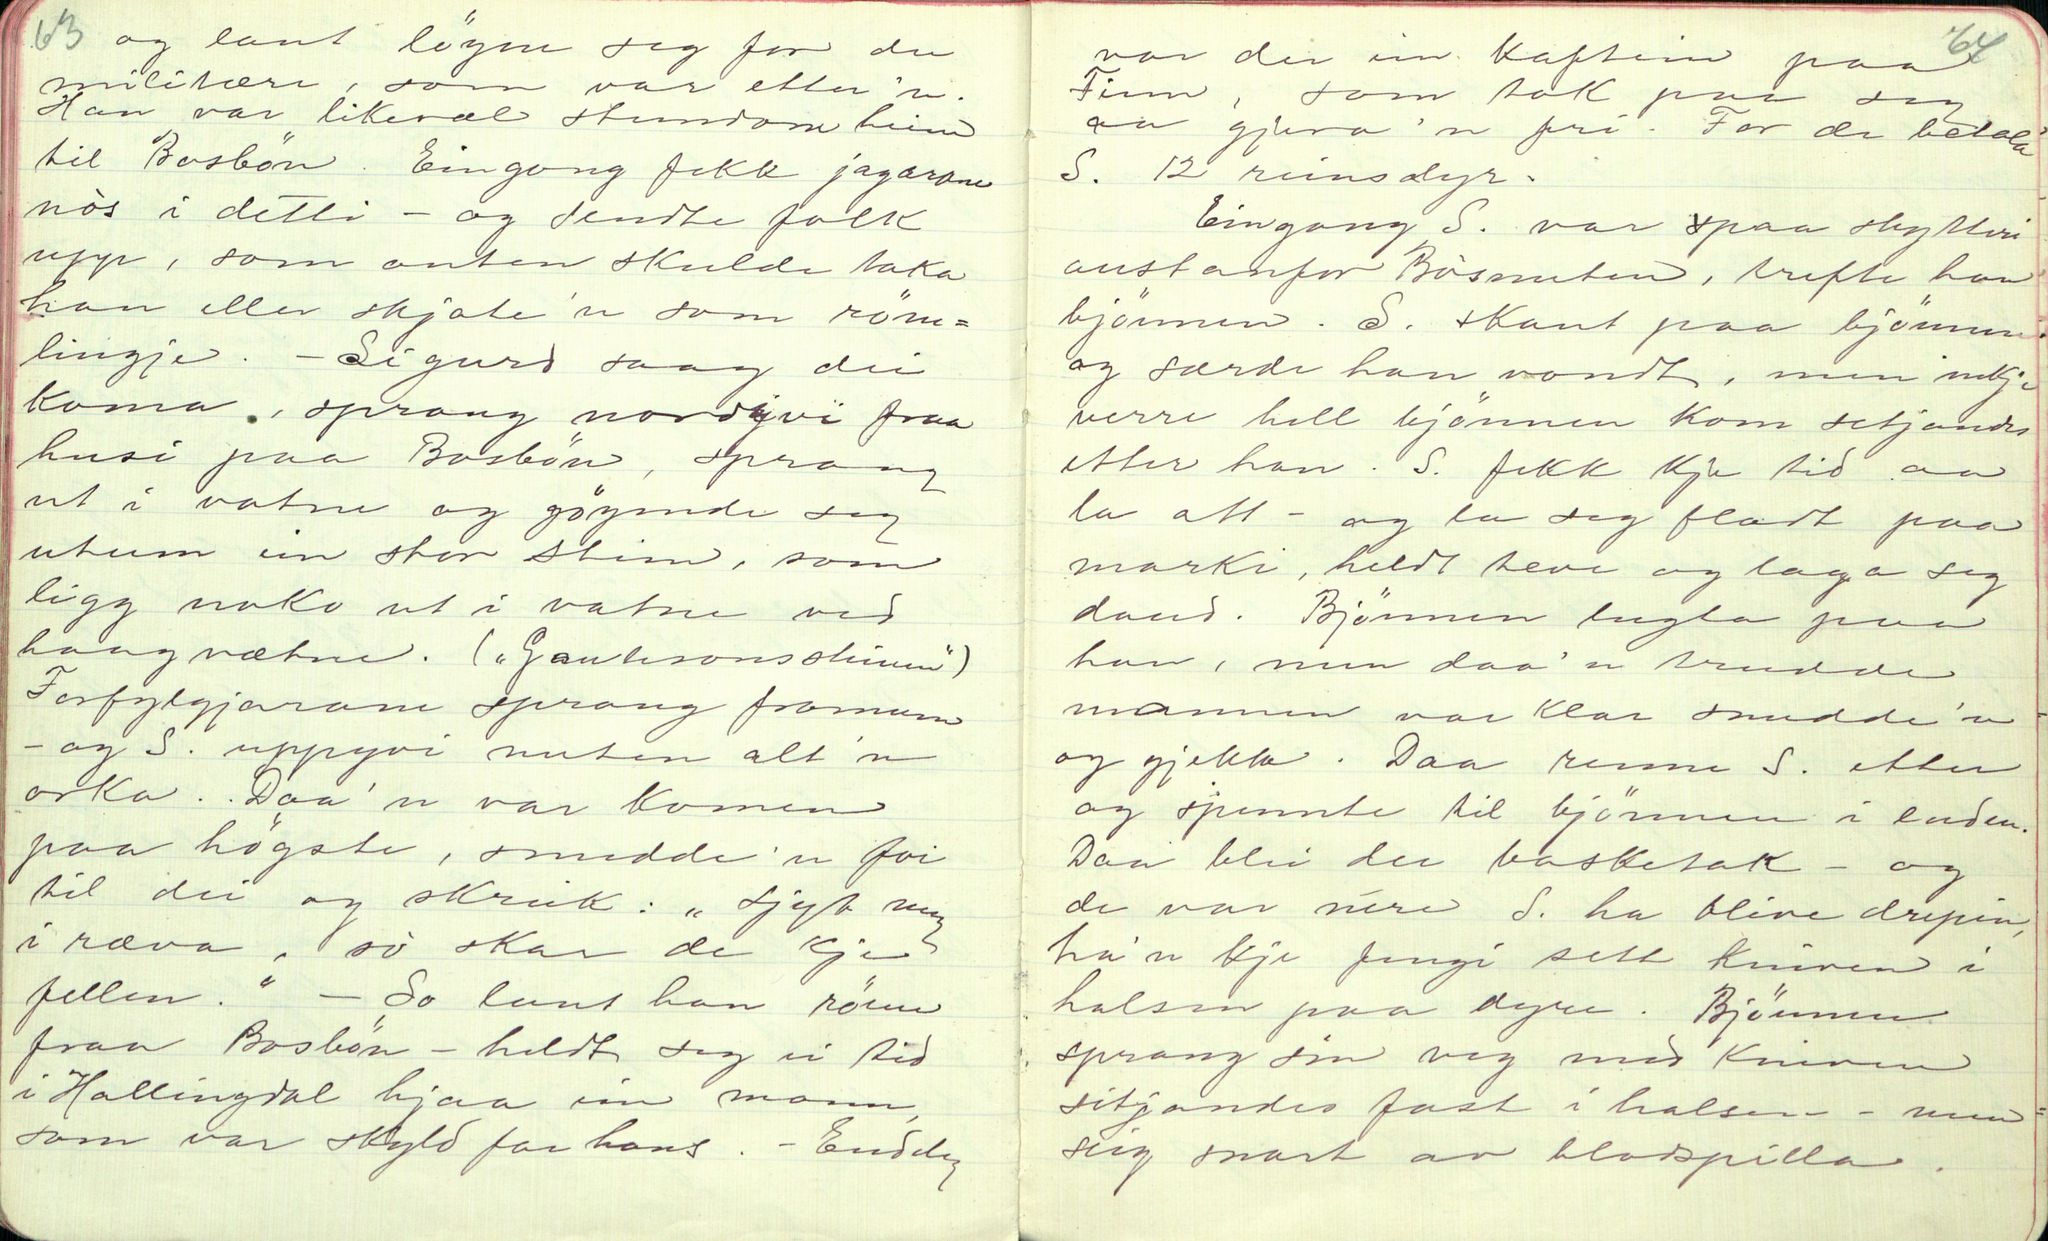 63
og laut löyne seg for dei
militære, som var etter'n.
Han var likevæl stundom heim
til Bosbön. Eingong fekk jagarane
nòs i detti – og sendte folk
upp, som anten skulde taka
han eller skjote'n som röm=
lingje. – Sigurd saag dei
koma, sprang nordyvi fraa
husi paa Bosbön, sprang
ut i vatne og göymde seg
utum ein stor stein, som
ligg noko ut i vatne ved
haagvætne. („Gautesonssteinen")
Forfylgjarane sprang framum
– og S. uppyvi nuten alt'n
orka. Daa'n var komen
paa högste, snudde'n foi
til dei og skreik: „Sjyt meg
i ræva, sò skar de kje
fellen." – So laut han röme
fraa Bosbön – heldt seg ei tid
i Hallingdal hjaa ein mann,
som var skyld far hans. – Endeleg
64
var dei ein kaftein paa
Finn, som tok paa seg
aa gjera'n fri. For de betala
S. 12 reinsdyr.
Eingong S. var paa skytteri
austanfor Bösnuten, trefte han
björnen. S. skaut paa björnen
og særde han vondt, men inkje
verre hell björnen kom setjandes
etter han. S. fekk kje tid aa
la att – og la seg fladt paa
marki, heldt teve og laga seg
daud. Björnen lugta paa
han, men daa'n trudde
mannen var klar snudde'n
og gjekk. Daa renne S. etter
og spennte til björnen i enden.
Daa blei dei basketak – og
de var nére S. ha blive drepin,
ha'n kje fengi sett kniven i
halsen paa dyre. Björnen
sprang sin veg med kniven
sitjandes fast i halsen – men
seig snart av blodspilla.